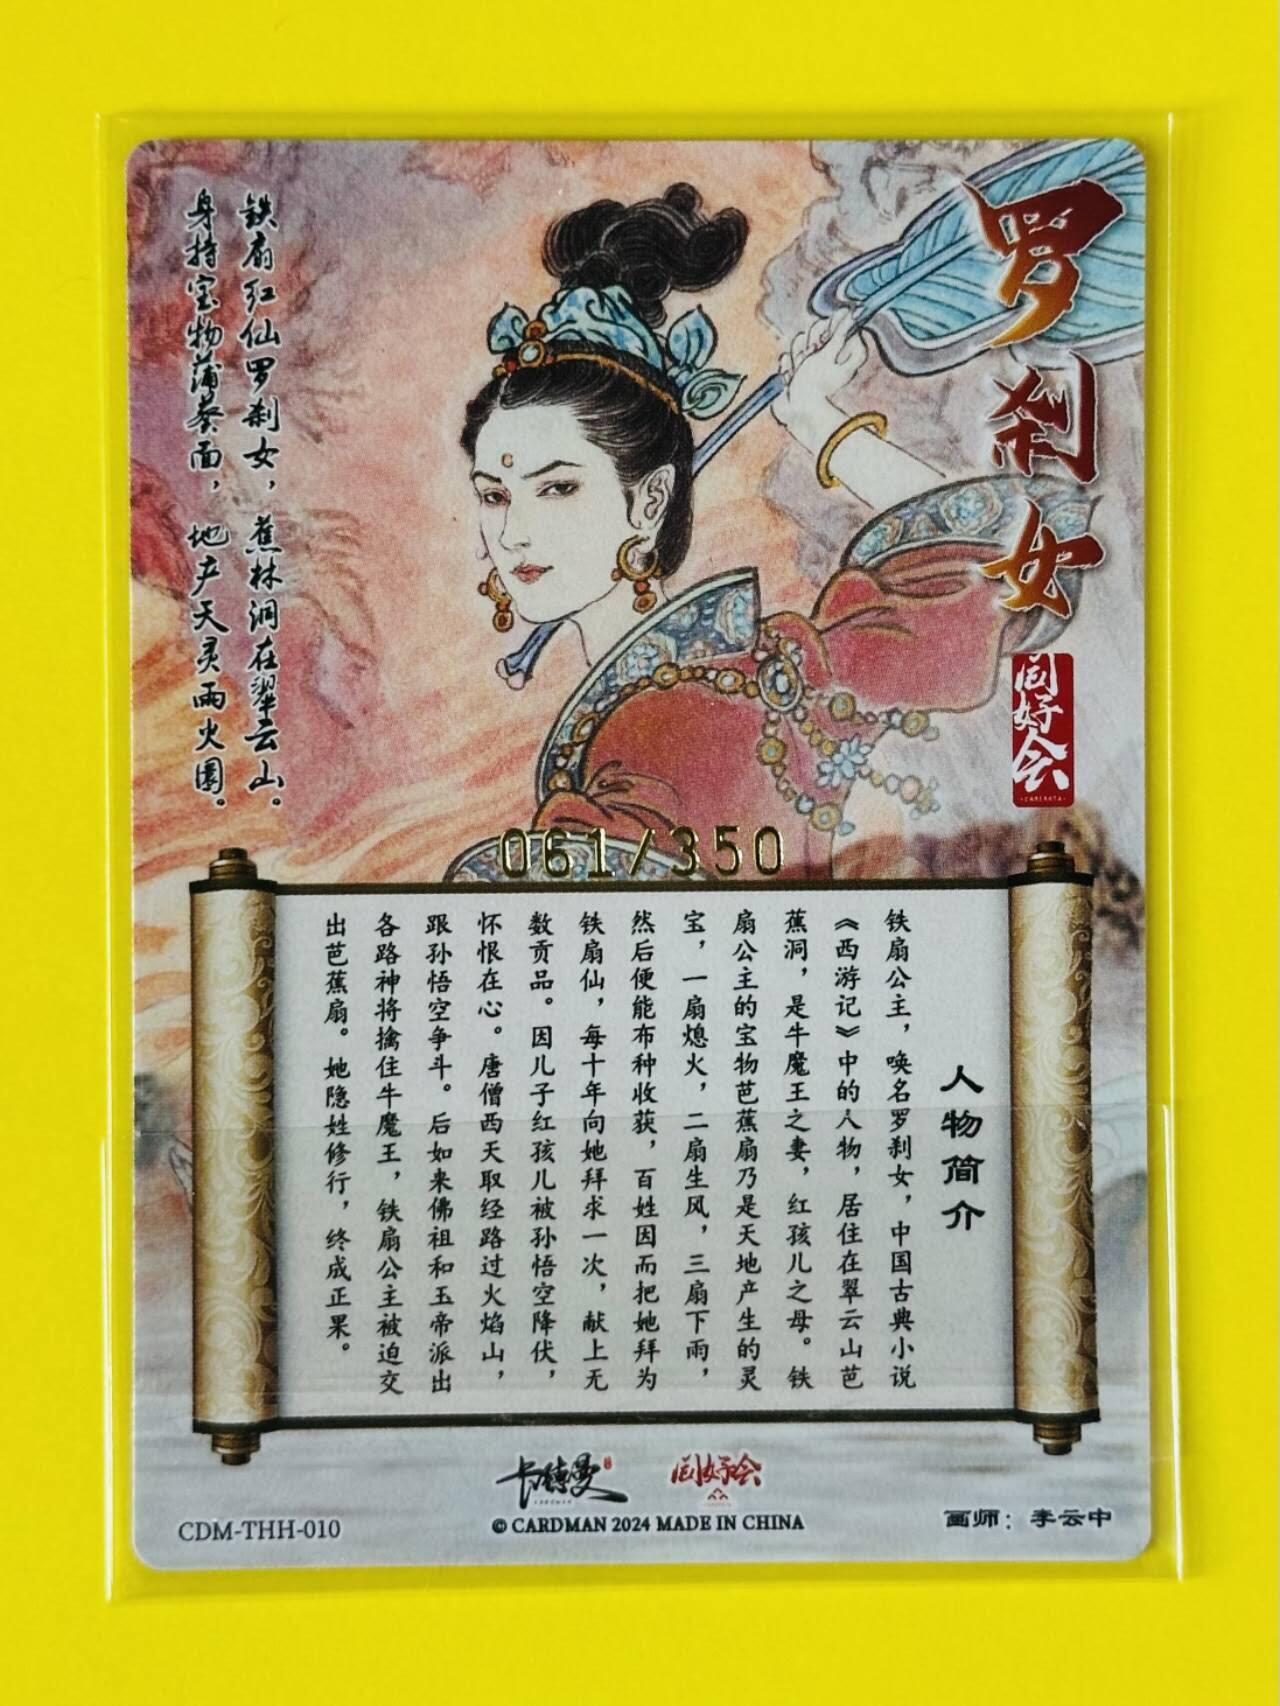 罗刹女
同好会
铁扇红仙罗刹女，蕉林洞在翠云山。
身持宝物蒲葵面，地产天灵雨火圆。
061/350
人物简介
铁扇公主，唤名罗刹女，中国古典小说
《西游记》中的人物，居住在翠云山芭
蕉洞，是牛魔王之妻，红孩儿之母。铁
扇公主的宝物芭蕉扇乃是天地产生的灵
宝，一扇熄火，二扇生风，三扇下雨，
然后便能布种收获，百姓因而把她拜为
铁扇仙，每十年向她拜求一次，献上无
数贡品。因儿子红孩儿被孙悟空降伏，
怀恨在心。唐僧西天取经路过火焰山，
跟孙悟空争斗。后如来佛祖和玉帝派出
各路神将擒住牛魔王，铁扇公主被迫交
出芭蕉扇。她隐姓修行，终成正果。
卡德曼
同好会
CDM-THH-010
© CARDMAN 2024 MADE IN CHINA
画师：李云中